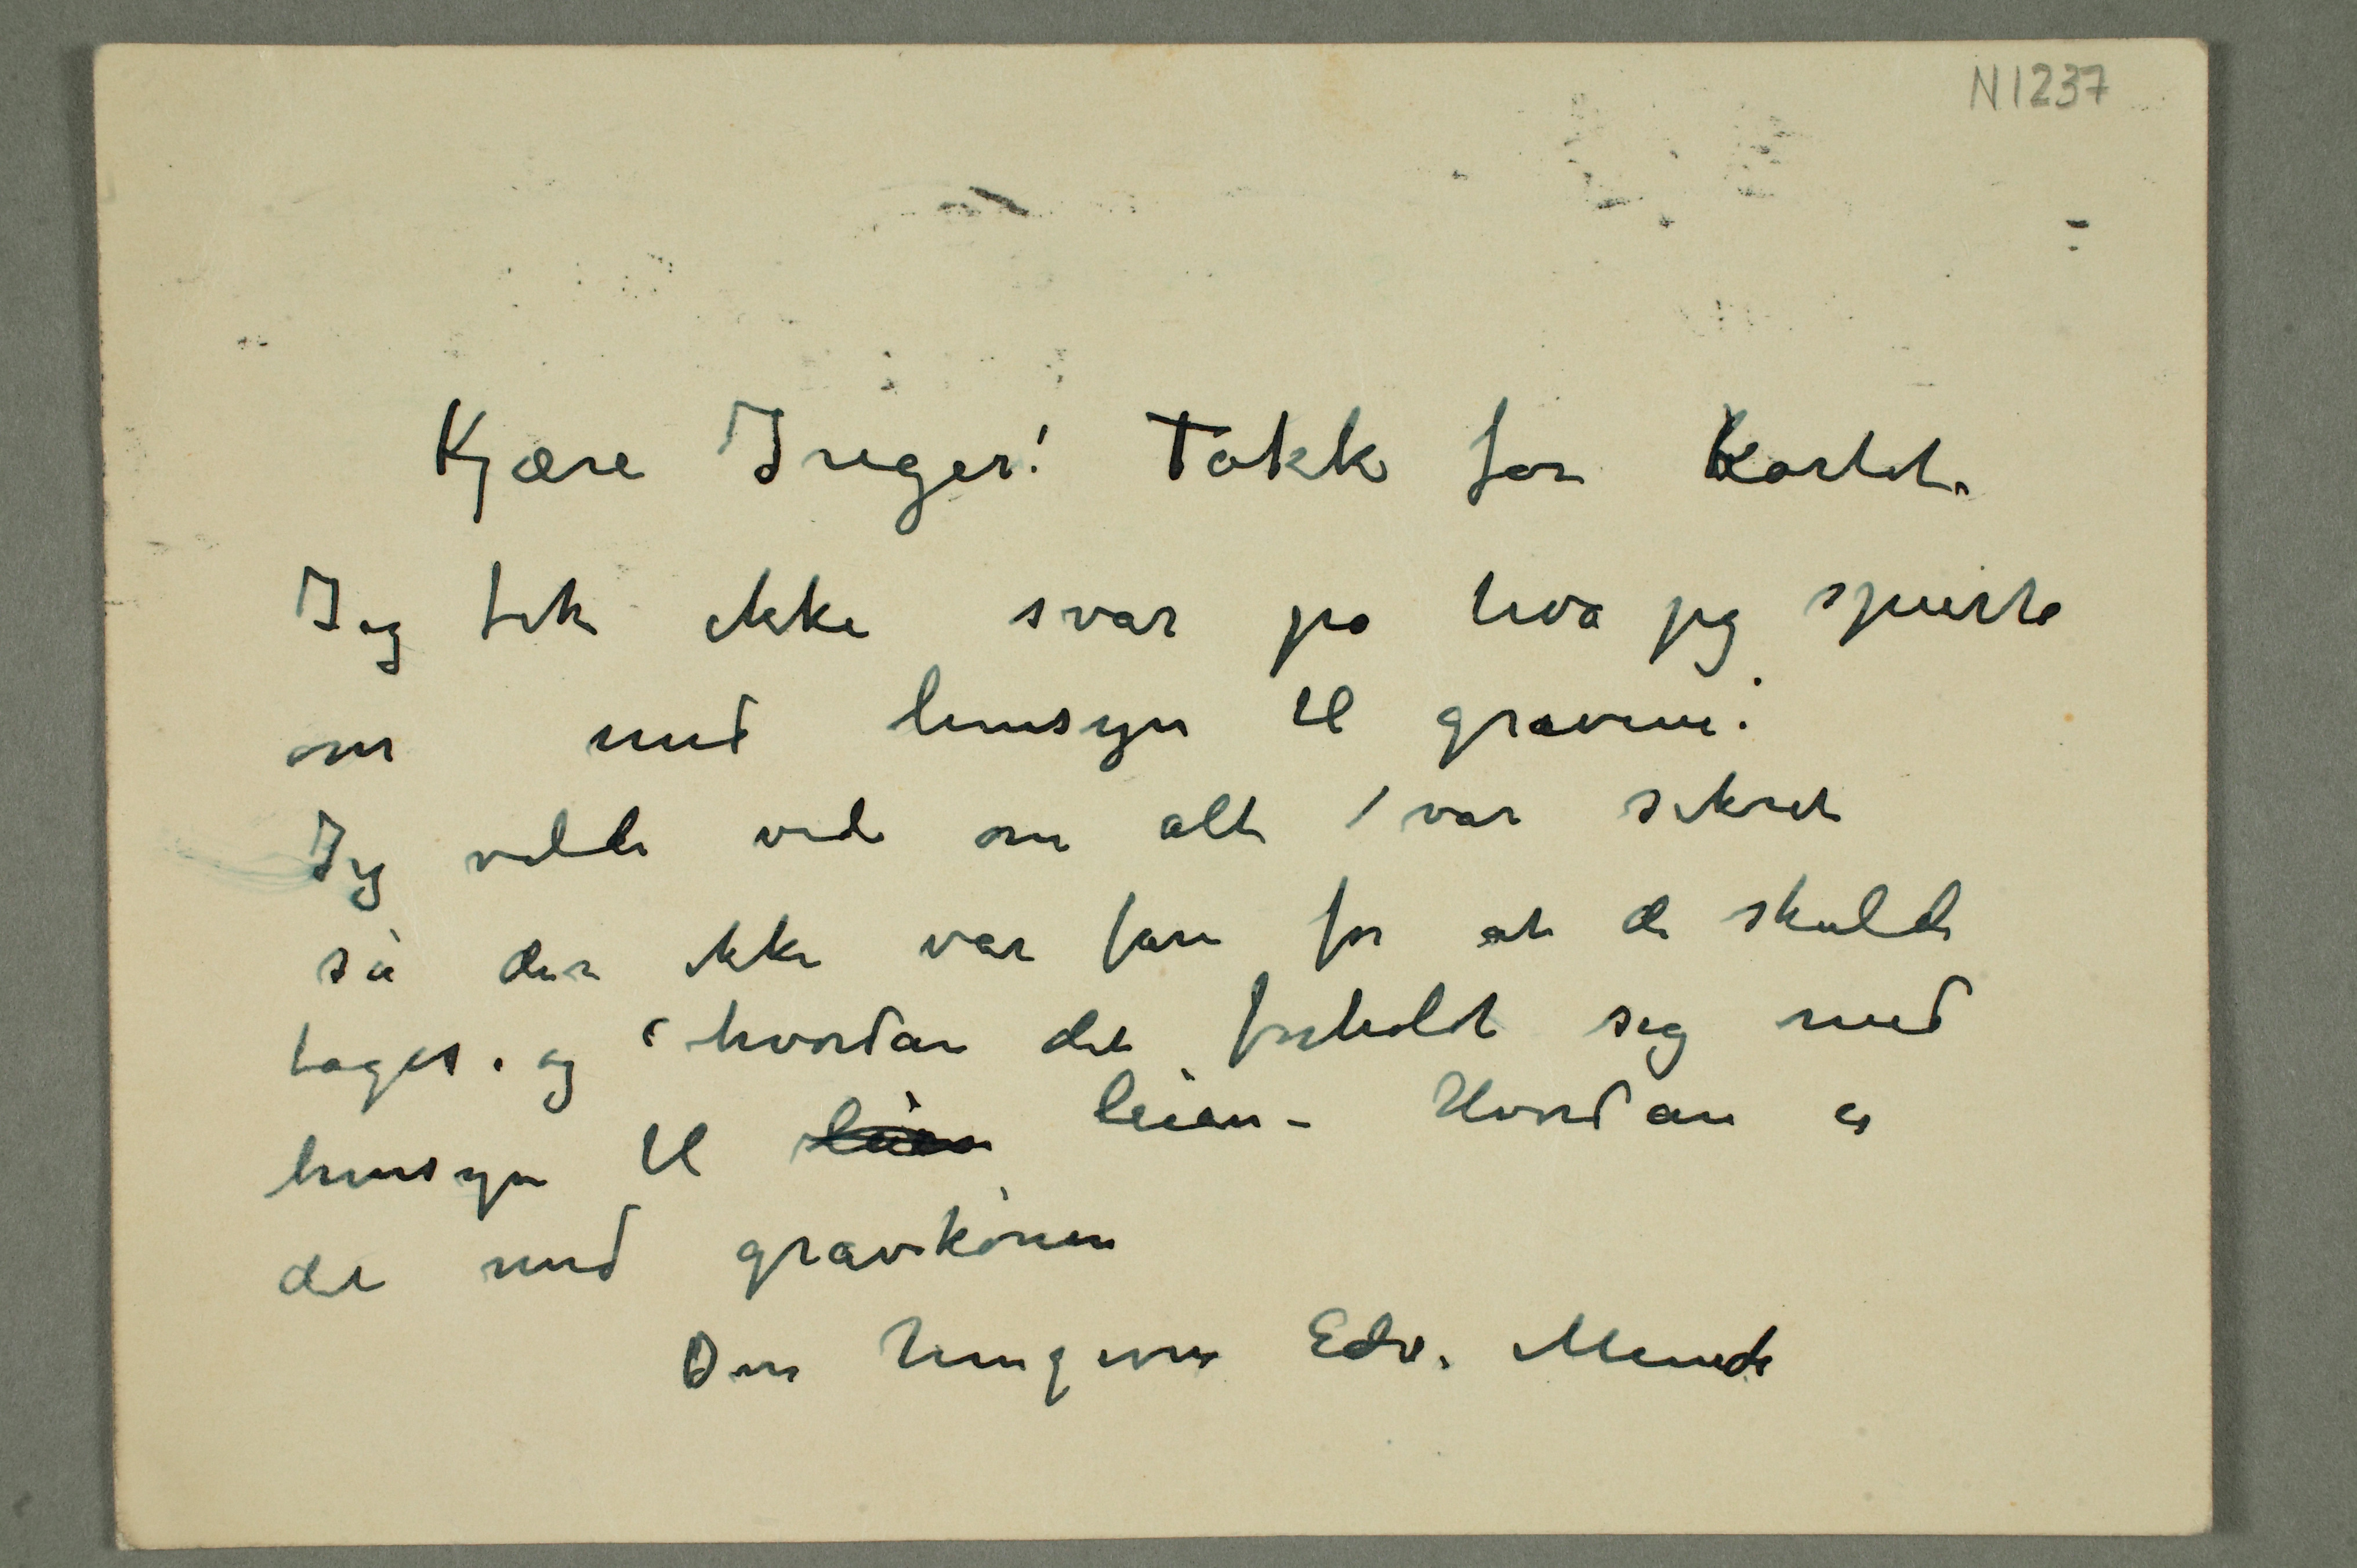 N 1237
Kjære Inger! Takk for Kortet.
Jeg fik ikke svar på hva jeg spurte
om med hensyn til gravene.
Jeg vilde vide om alt var sikret
så der ikke var fare for at de skulde
tages. og hvordan det forholdt sig med
hensyn til leien leien – Hvordan er
det med gravkonen
Din hengivne Edv. Munch